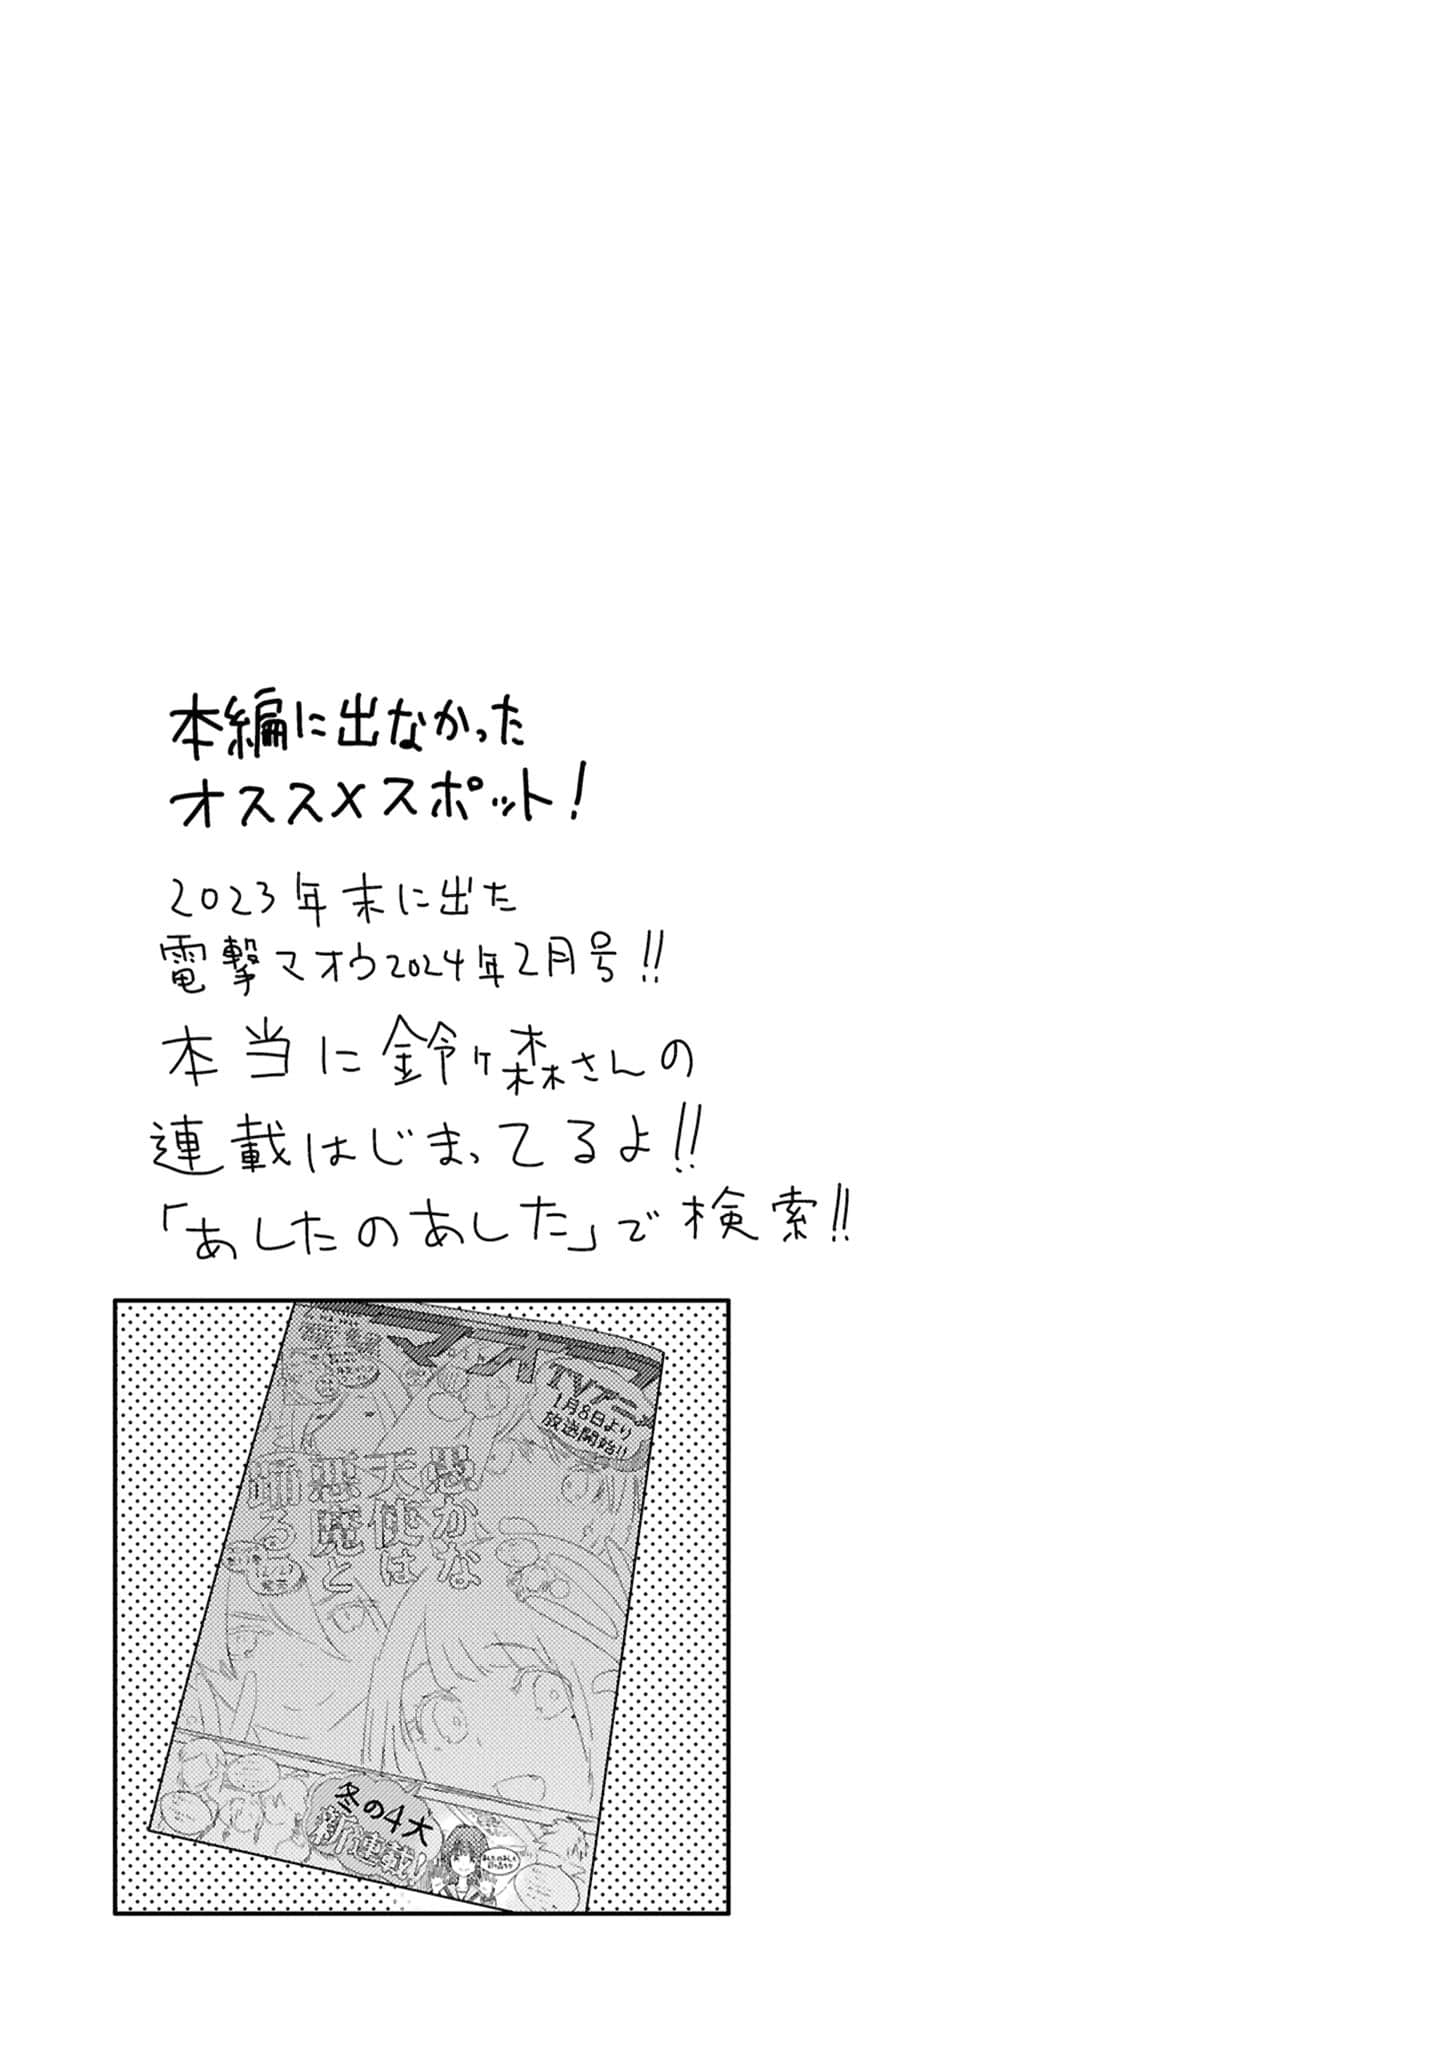 本編に出なかった
オススメスポット!
2023年末に出た
電撃マオウ2024年2月号!!
本当に鈴ヶ森さんの
連載はじまってるよ!!
「あしたのあした」で検索!!
マオウ
TVアニメ
1月8日より
放送開始!!
愚かな
天使は
悪魔と
踊る
冬の4大
新連載!